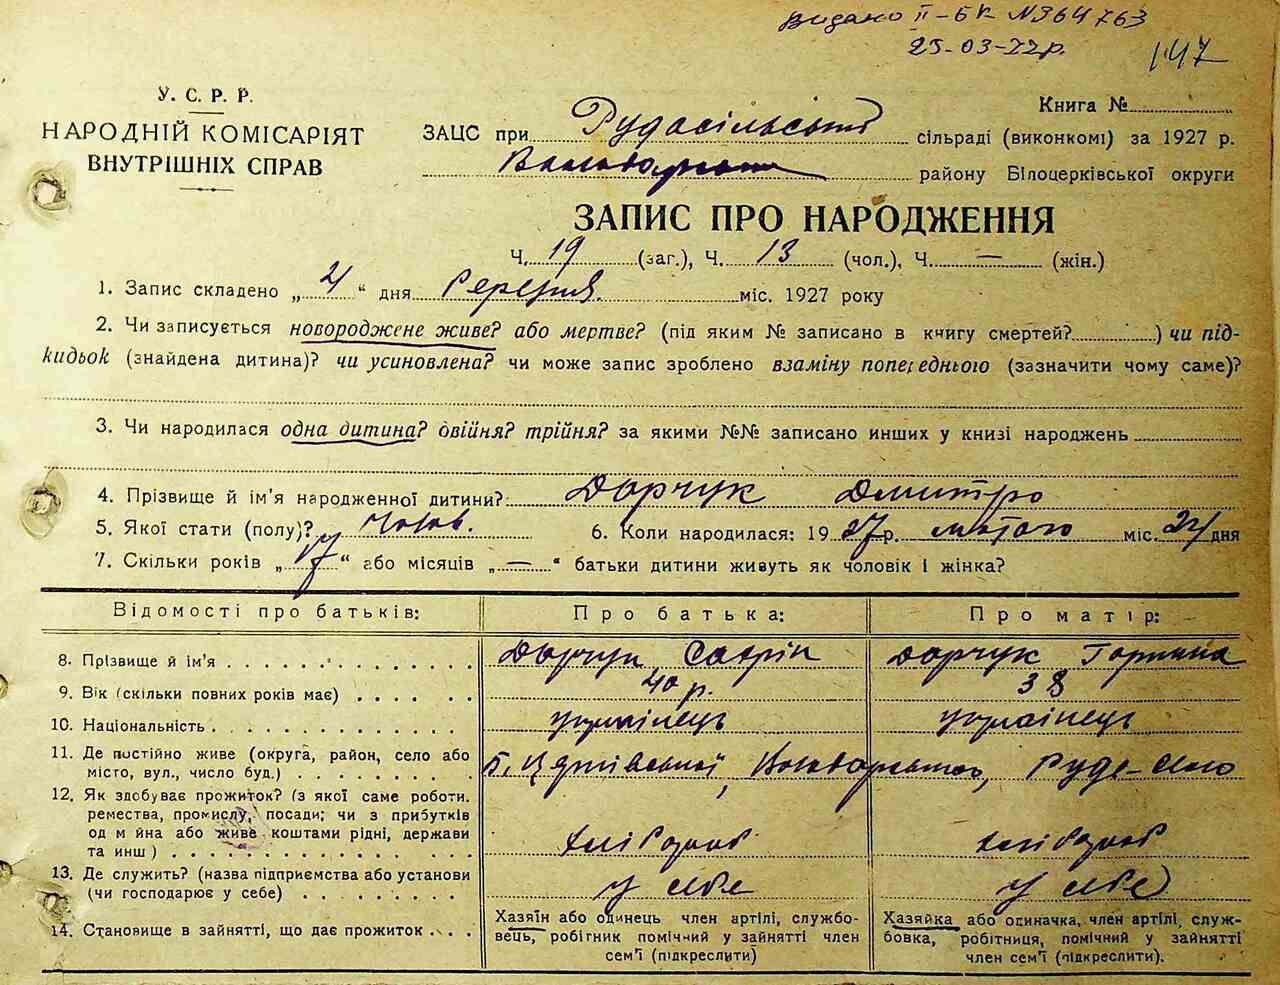 Видано II-БК №364763
25-03-72р.
147
У. С. Р. Р.
НАРОДНІЙ КОМІСАРІЯТ
ВНУТРІШНІХ СПРАВ
Книга №
ЗАЦС при Рудосільській сільраді (виконкомі) за 1927 р.
району Білоцерківської округи
ЗАПИС ПРО НАРОДЖЕННЯ
Ч. 19 (заг.), Ч. 13 (чол.), Ч. — (жін.)
1. Запис складено „ “ дня березня міс. 1927 року
2. Чи записується новороджене живе? або мертве? (під яким № записано в книгу смертей? ) чи під-
кидьок (знайдена дитина)? чи усиновлена? чи може запис зроблено взаміну попереднього (зазначити чому саме)?
3. Чи народилася одна дитина? двійня? трійня? за якими №№ записано инших у книзі народжень
4. Прізвище й ім'я народженної дитини? Дорчук Дмитро
5. Якої стати (полу)? Чолов. 6. Коли народилася: 1927 р. лютого міс. 24 дня
7. Скільки років „17“ або місяців „—“ батьки дитини живуть як чоловік і жінка?
Відомості про батьків: Про батька: Про матір:
8. Прізвище й ім'я Дорчук Дорчук Горпина
9. Вік (скільки повних років має) 40 р. 38
10. Національність українець українець
11. Де постійно живе (округа, район, село або
місто, вул., число буд.) Б. Церківської, Руде-Село
12. Як здобуває прожиток? (з якої саме роботи,
ремества, промислу, посади; чи з прибутків
од м йна або живе коштами рідні, держави
та инш) хлібороб хлібороб
13. Де служить? (назва підприємства або установи
(чи господарює у себе) у себе у себе
14. Становище в зайнятті, що дає прожиток
Хазяїн або одинець член артілі, службо-
вець, робітник помічний у зайнятті член
сем'ї (підкреслити)
Хазяйка або одиначка, член артілі, служ-
бовка, робітниця, помічний у зайнятті
член сем'ї (підкреслити).